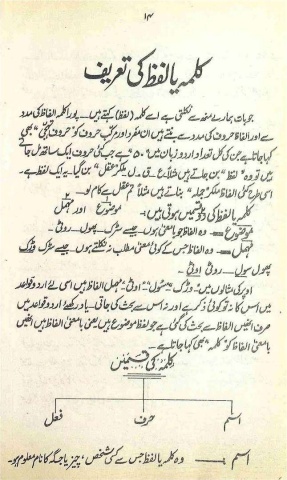 ۱۴
کلمہ یا لفظ کی تعریف
جو بات ہمارے منہ سے نکلتی ہے اسے کلمہ (لفظ) کہتے ہیں۔ پورا کلمہ الفاظ کی مدد
سے اور الفاظ حروف کی مدد سے بنتے ہیں ان مفرد اور مرکب حروف کو "حروف تہجی" بھی
کہا جاتا ہے جن کی کل تعداد اردو زبان میں "۵۰" ہے جب کئی حروف ایک ساتھ مل جاتے
ہیں تو وہ "لفظ" بن جاتے ہیں مثلاً ع۔ق۔ل مل کر "عقل" بن گیا۔ یہ ایک لفظ ہے۔
اسی طرح کئی الفاظ مل کر "جملہ" بناتے ہیں مثلاً تم عقل سے کام لو۔
کلمہ یا لفظ کی دو قسمیں ہوتی ہیں: موضوع اور مہمل
موضوع — وہ الفاظ جو با معنی ہوں۔ جیسے سڑک۔ پھول۔ روٹی۔
مہمل — وہ الفاظ جس کے کوئی معنی مطلب نہ نکلتے ہوں جیسے سڑک وڑک
پھول سول۔ روٹی ووٹی۔
اوپر کی مثالوں میں "وڑک" "سول" "ووٹی" مہمل الفاظ ہیں اسی لئے اردو قواعد
میں اس کا نہ تو کوئی ذکر ہے اور نہ اس سے بحث کی جاتی۔ یاد رکھئے اردو قواعد میں
صرف انھیں الفاظ سے بحث کی گئی ہے جو لفظ موضوع ہیں یعنی با معنی الفاظ ہیں انھیں
با معنی الفاظ کو "کلمہ" بھی کہا جاتا ہے۔
کلمہ کی قسمیں
اسم حرف فعل
اسم — وہ کلمہ یا لفظ جس سے کسی شخص، چیز یا جگہ کا نام معلوم ہو۔